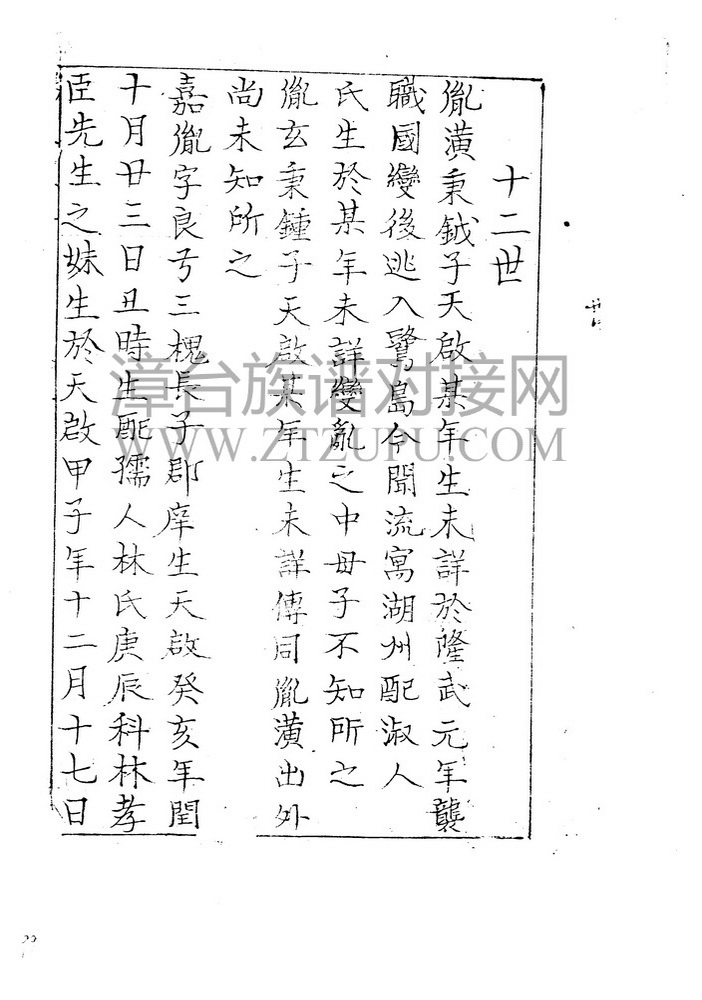 十二世
胤潢秉鉞子天啟某年生未詳於隆武元年襲
職國變後逃入鷺島今聞流寓湖州配淑人
氏生於某年未詳變亂之中母子不知所之
胤玄秉鍾子天啟某年生未詳傳同胤潢出外
尚未知所之
嘉胤字良号三槐長子郡庠生天啟癸亥年閏
十月廿三日丑時生配孺人林氏庚辰科林孝
臣先生之妹生於天啟甲子年十二月十七日
漳台族谱对接网
WWW.ZTZUPU.COM